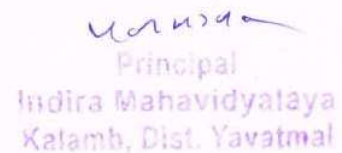 Principal
Indira Mahavidyalaya
Kalamb, Dist. Yavatmal